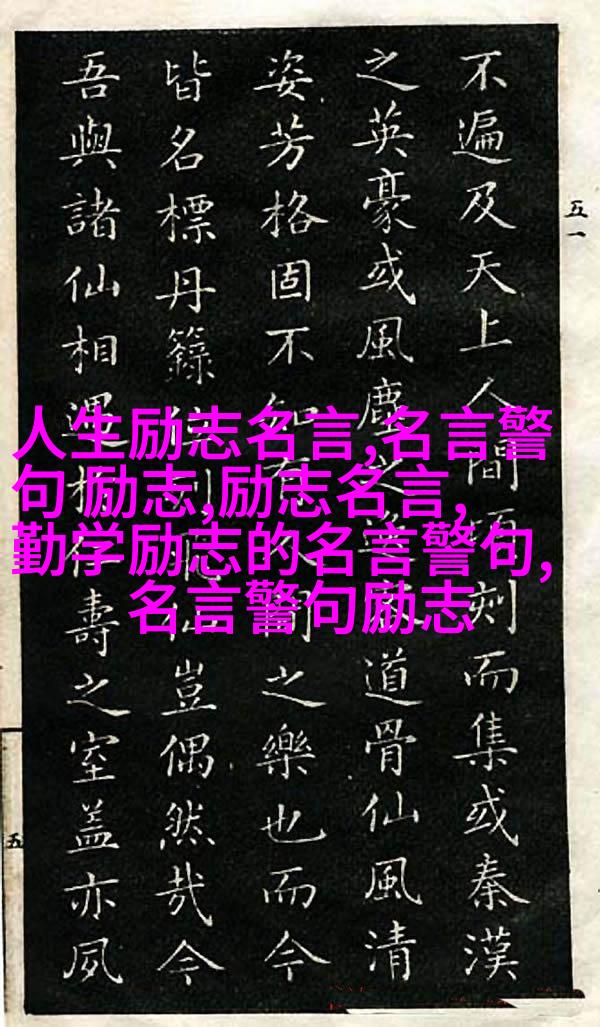 人生励志名言,名言警
句 励志,励志名言,
勤学励志的名言警句,
名言警句励志
不遍及天上人間刻而集或秦漢
之英豪或風塵之道骨仙風清
姿芳格固不如有人間之樂也而今
皆名標丹籙位列仙豈偶然哉今
吾與諸仙相遇壽之室蓋亦夙
五一
五